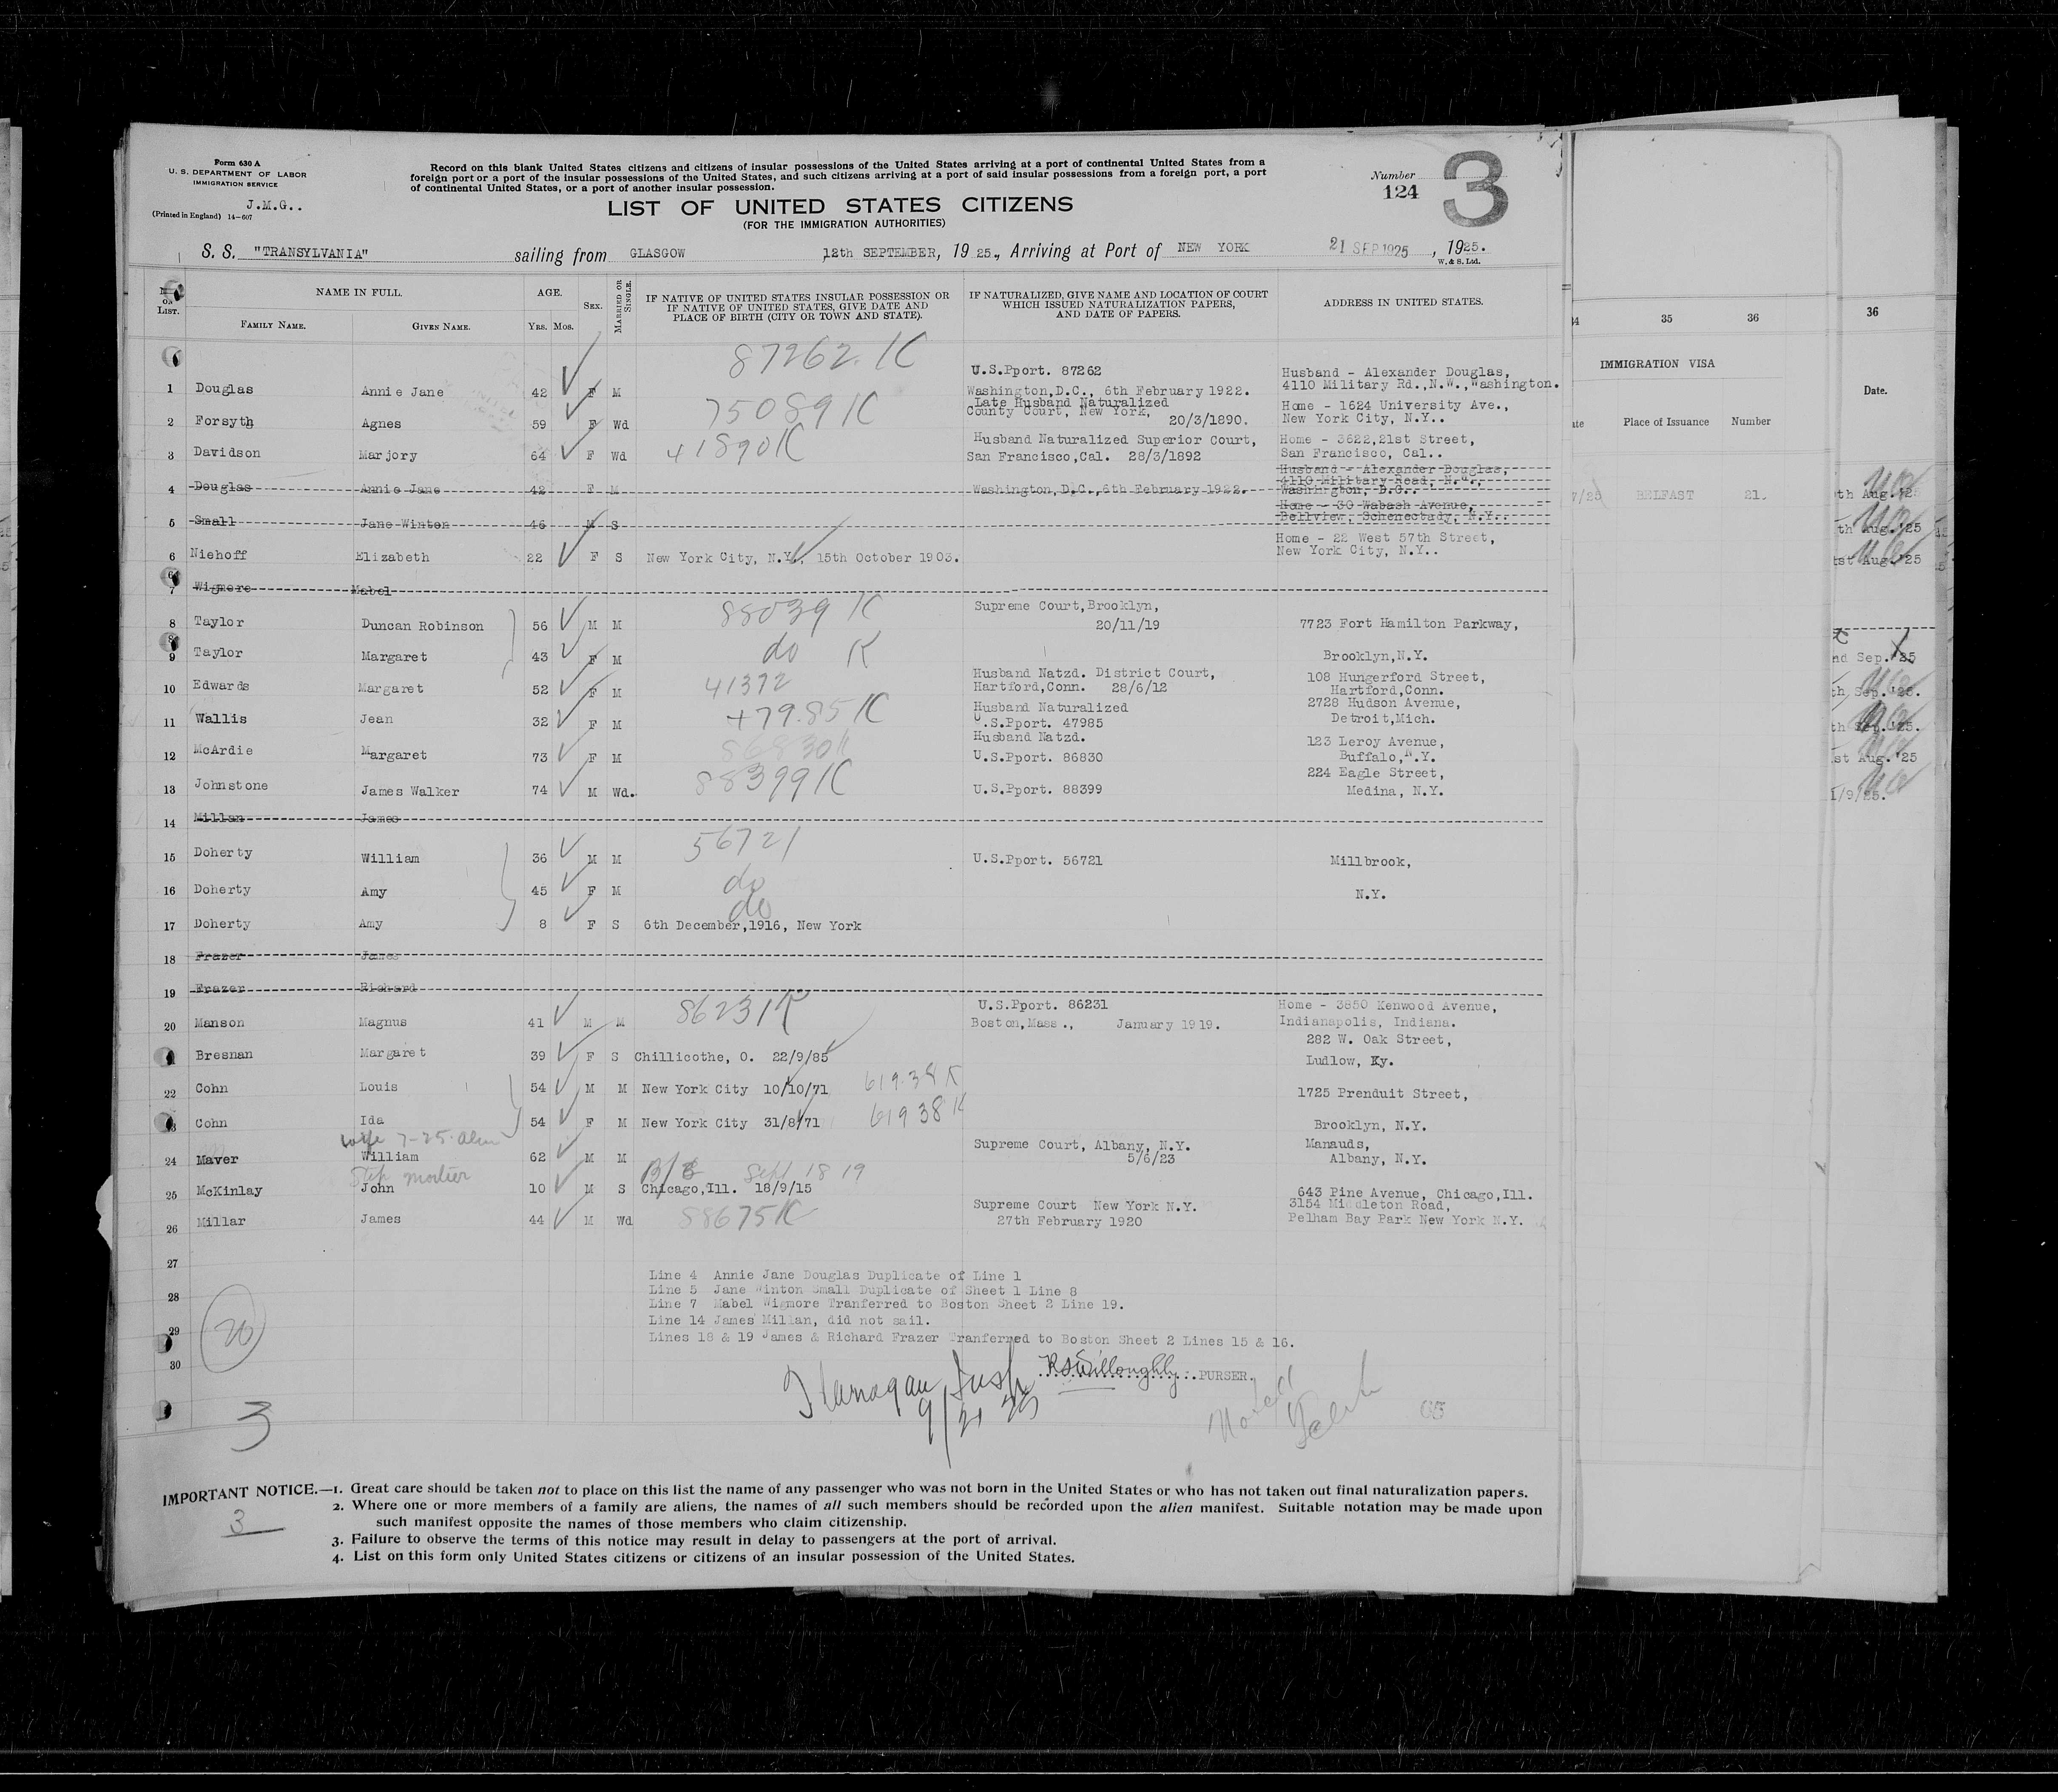 Form 630 A
U. S. DEPARTMENT OF LABOR
IMMIGRATION SERVICE
J.M.G..
(Printed in England) 14—607
Record on this blank United States citizens and citizens of insular possessions of the United States arriving at a port of continental United States from a
foreign port or a port of the insular possessions of the United States, and such citizens arriving at a port of said insular possessions from a foreign port, a port
of continental United States, or a port of another insular possession.
Number
124
3
LIST OF UNITED STATES CITIZENS
(FOR THE IMMIGRATION AUTHORITIES)
S. S. "TRANSYLVANIA" sailing from GLASGOW 12th SEPTEMBER, 1925., Arriving at Port of NEW YORK 21 SEP 1925, 1925.
W. & S. Ltd.
ON LIST. NAME IN FULL. AGE. SEX. MARRIED OR SINGLE. IF NATIVE OF UNITED STATES INSULAR POSSESSION OR IF NATIVE OF UNITED STATES, GIVE DATE AND PLACE OF BIRTH (CITY OR TOWN AND STATE). IF NATURALIZED, GIVE NAME AND LOCATION OF COURT WHICH ISSUED NATURALIZATION PAPERS, AND DATE OF PAPERS. ADDRESS IN UNITED STATES.
FAMILY NAME. GIVEN NAME. YRS. MOS.
87262 K U.S.Pport. 87262 Husband - Alexander Douglas,
1 Douglas Annie Jane 42 F M Washington,D.C., 6th February 1922. 4110 Military Rd.,N.W.,Washington.
75089 K Late Husband Naturalized Home - 1624 University Ave.,
2 Forsyth Agnes 59 F Wd County Court, New York, 20/3/1890. New York City, N.Y..
41890 K Husband Naturalized Superior Court, Home - 3622,21st Street,
3 Davidson Marjory 64 F Wd San Francisco,Cal. 28/3/1892 San Francisco, Cal..
Husband - Alexander Douglas,
4110 Military Road, N.W.,
4 Douglas Annie Jane 42 F M Washington,D.C.,6th February 1922. Washington, D.C..
Home - 30 Wabash Avenue,
5 Small Jane Winton 46 M S Bellview, Schenectady, N.Y..
Home - 22 West 57th Street,
6 Niehoff Elizabeth 22 F S New York City, N.Y., 15th October 1903. New York City, N.Y..
7 Wigmore Mabel
88039 K Supreme Court,Brooklyn,
8 Taylor Duncan Robinson 56 M M 20/11/19 7723 Fort Hamilton Parkway,
9 Taylor Margaret 43 F M do K Brooklyn,N.Y.
41372 Husband Natzd. District Court, 108 Hungerford Street,
10 Edwards Margaret 52 F M Hartford,Conn. 28/6/12 Hartford,Conn.
Husband Naturalized 2728 Hudson Avenue,
11 Wallis Jean 32 F M 47985 K U.S.Pport. 47985 Detroit,Mich.
86830 K Husband Natzd. 123 Leroy Avenue,
12 McArdie Margaret 73 F M U.S.Pport. 86830 Buffalo,N.Y.
88399 K 224 Eagle Street,
13 Johnstone James Walker 74 M Wd. U.S.Pport. 88399 Medina, N.Y.
14 Millan James
56721
15 Doherty William 36 M M U.S.Pport. 56721 Millbrook,
16 Doherty Amy 45 F M do N.Y.
do
17 Doherty Amy 8 F S 6th December,1916, New York
18 Frazer James
19 Frazer Richard
86231 K U.S.Pport. 86231 Home - 3850 Kenwood Avenue,
20 Manson Magnus 41 M M Boston,Mass., January 1919. Indianapolis, Indiana.
282 W. Oak Street,
Bresnan Margaret 39 F S Chillicothe, O. 22/9/85 Ludlow, Ky.
22 Cohn Louis 54 M M New York City 10/10/71 61938 K 1725 Prenduit Street,
Cohn Ida 54 F M New York City 31/8/71 61938 K Brooklyn, N.Y.
wife 7-25 Alien Supreme Court, Albany, N.Y. Manauds,
24 Maver William 62 M M 5/6/23 Albany, N.Y.
Step mother B/B Sept 18 19
25 McKinlay John 10 M S Chicago,Ill. 18/9/15 643 Pine Avenue, Chicago,Ill.
88675 K Supreme Court New York N.Y. 3154 Middleton Road,
26 Millar James 44 M Wd 27th February 1920 Pelham Bay Park New York N.Y.
27
Line 4 Annie Jane Douglas Duplicate of Line 1
28 Line 5 Jane Winton Small Duplicate of Sheet 1 Line 8
Line 7 Mabel Wigmore Tranferred to Boston Sheet 2 Line 19.
Line 14 James Millan, did not sail.
29 Lines 18 & 19 James & Richard Frazer Tranferred to Boston Sheet 2 Lines 15 & 16.
20
30
R S Willoughby PURSER.
Flanagan Insp
9/21 25
65
3
IMPORTANT NOTICE.—1. Great care should be taken not to place on this list the name of any passenger who was not born in the United States or who has not taken out final naturalization papers.
2. Where one or more members of a family are aliens, the names of all such members should be recorded upon the alien manifest. Suitable notation may be made upon
such manifest opposite the names of those members who claim citizenship.
3. Failure to observe the terms of this notice may result in delay to passengers at the port of arrival.
4. List on this form only United States citizens or citizens of an insular possession of the United States.
3
35 36
IMMIGRATION VISA
Place of Issuance Number
7/25 BELFAST 21.
36
Date.
th Aug.'25
th Aug.'25
1st Aug.'25
nd Sep.'25
th Sep.'25.
th Sep.'25.
st Aug.'25
1/9/25.